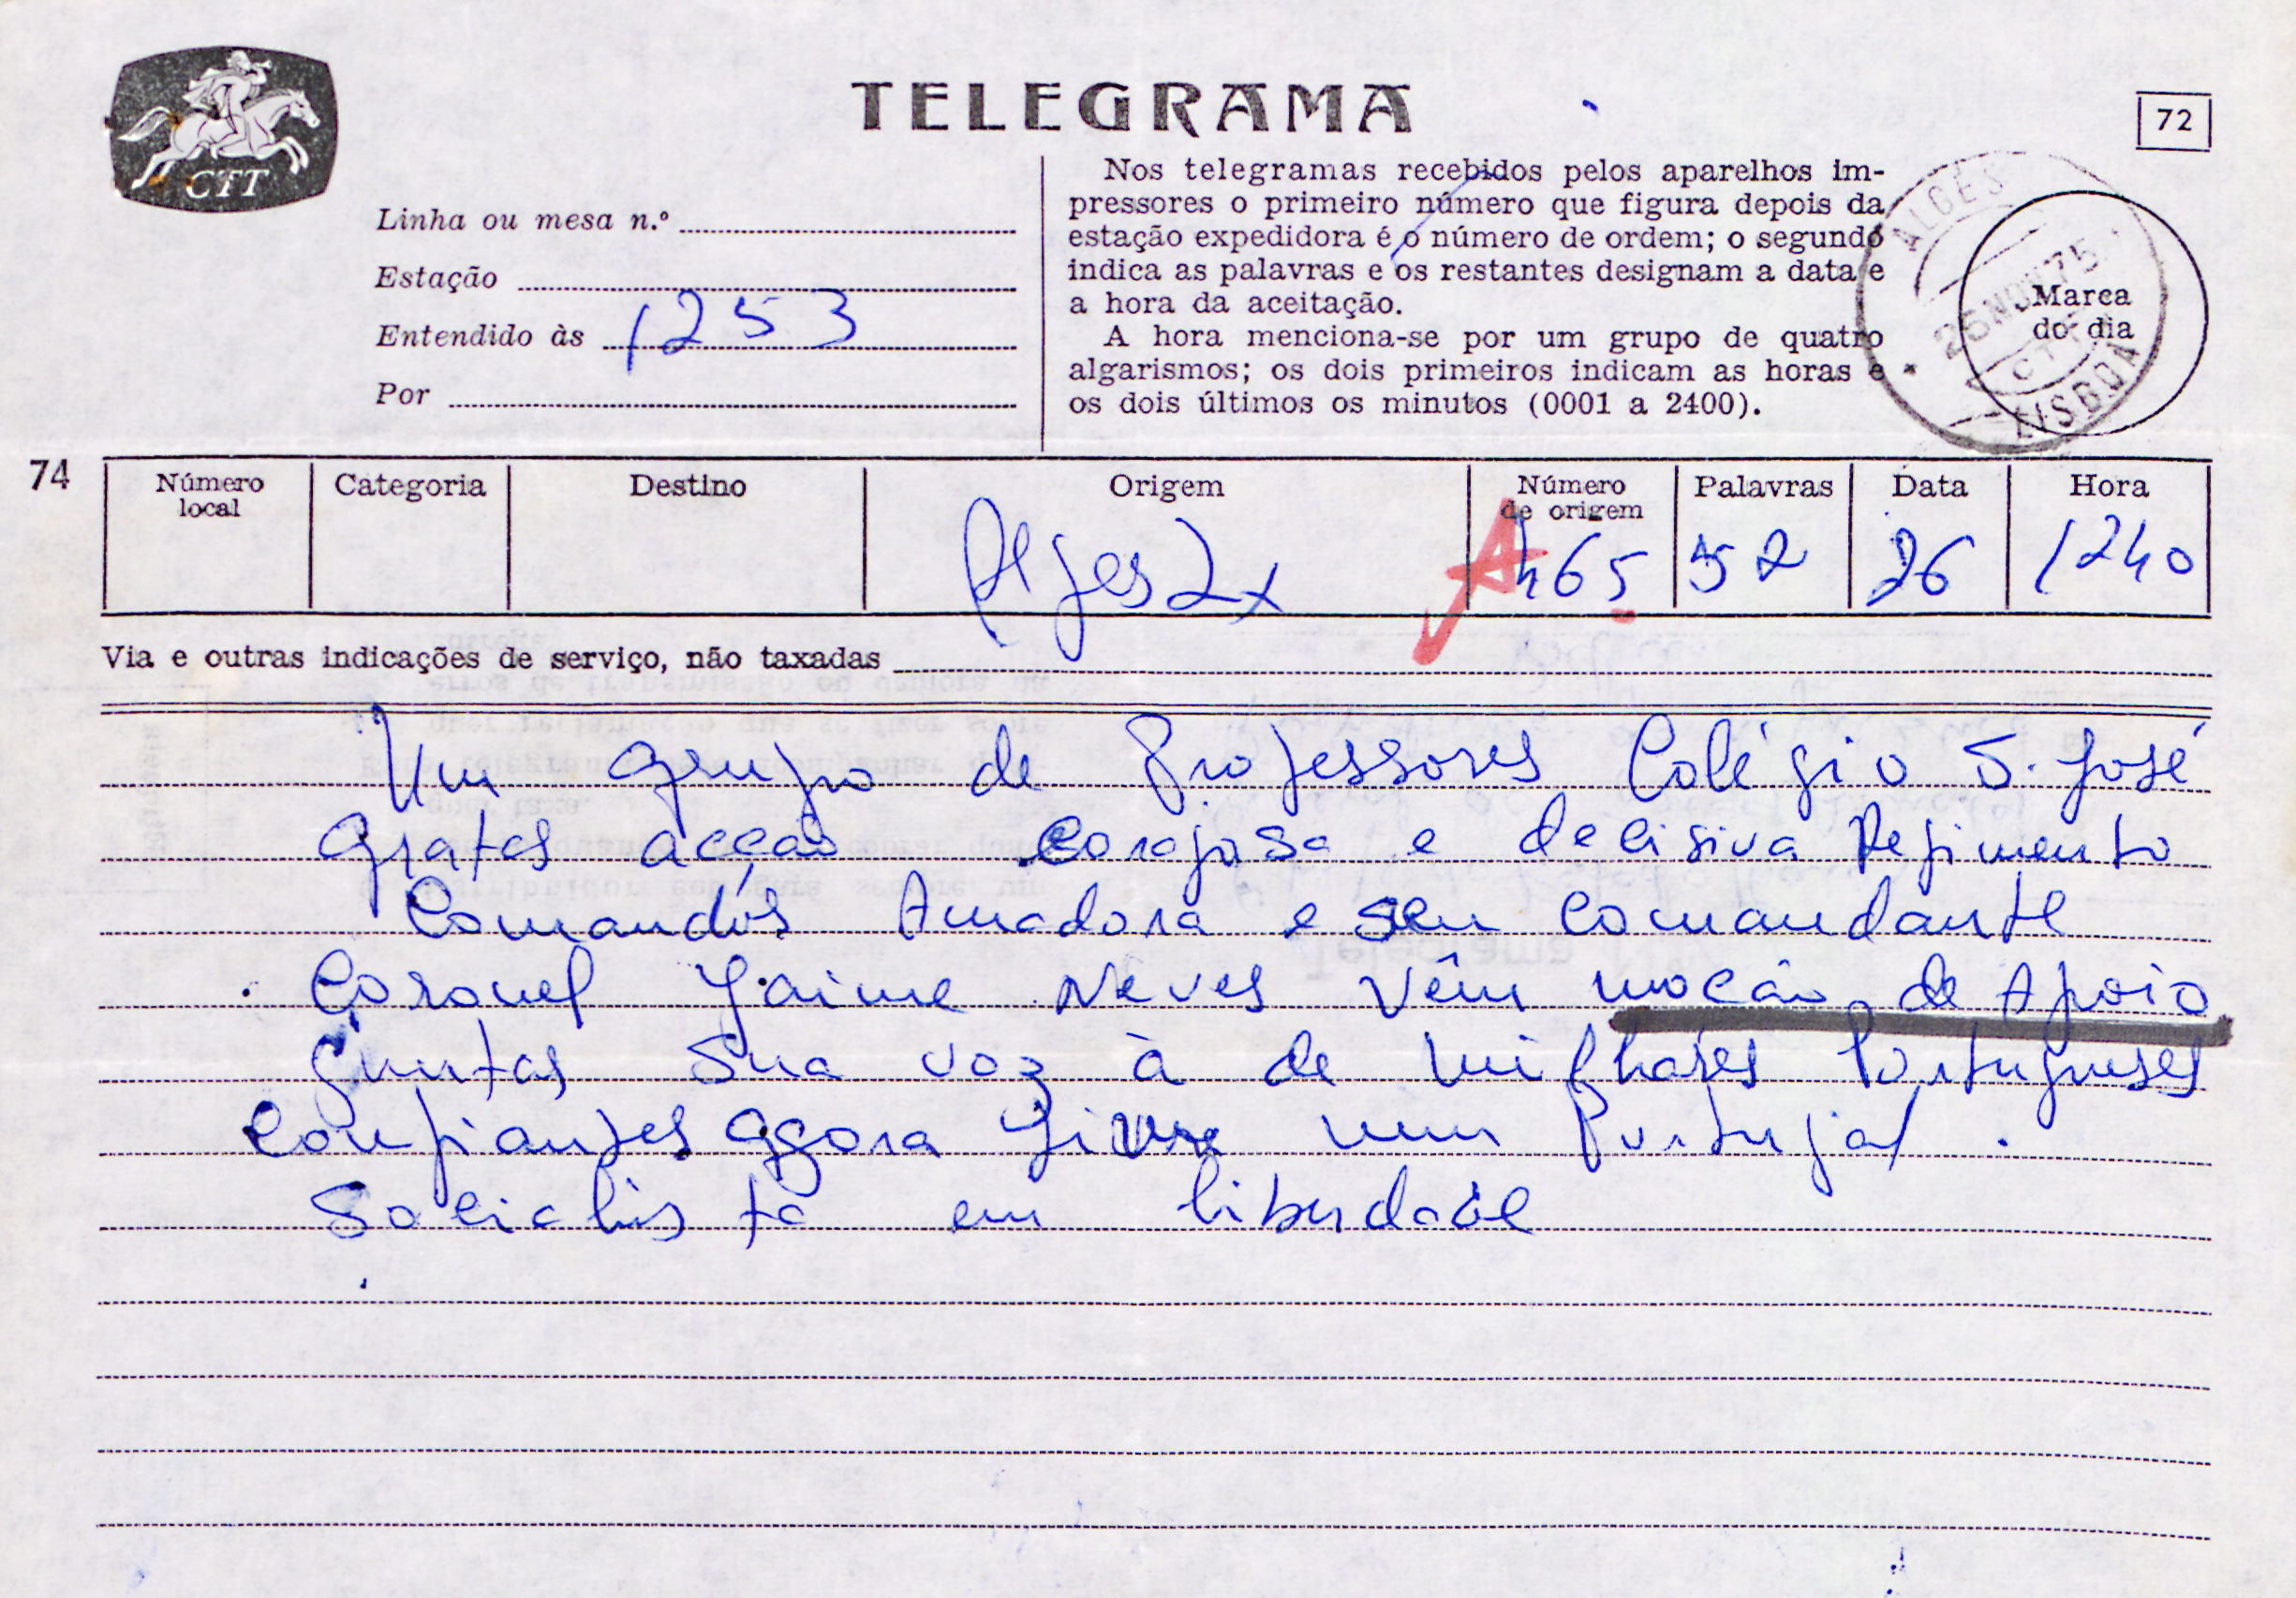 CTT
TELEGRAMA
72
Linha ou mesa n.º
Estação
Entendido às 1253
Por
Nos telegramas recebidos pelos aparelhos im-
pressores o primeiro número que figura depois da
estação expedidora é o número de ordem; o segundo
indica as palavras e os restantes designam a data e
a hora da aceitação.
A hora menciona-se por um grupo de quatro
algarismos; os dois primeiros indicam as horas e
os dois últimos os minutos (0001 a 2400).
ALGÉS
26 NOV 75
CTT
LISBOA
Marca
do dia
74
Número local
Categoria
Destino
Origem
Número de origem
Palavras
Data
Hora
Alges Lx
A
465
52
26
1240
Via e outras indicações de serviço, não taxadas
Um grupo de Professores Colégio S. José
Gratos acção corajosa e decisiva Regimento
Comandos Amadora e seu comandante
Coronel Jaime Neves vêm moção de Apoio
Juntas sua voz à de milhares Portugueses
Confiantes agora num Portugal
Socialista em liberdade
Telegrama